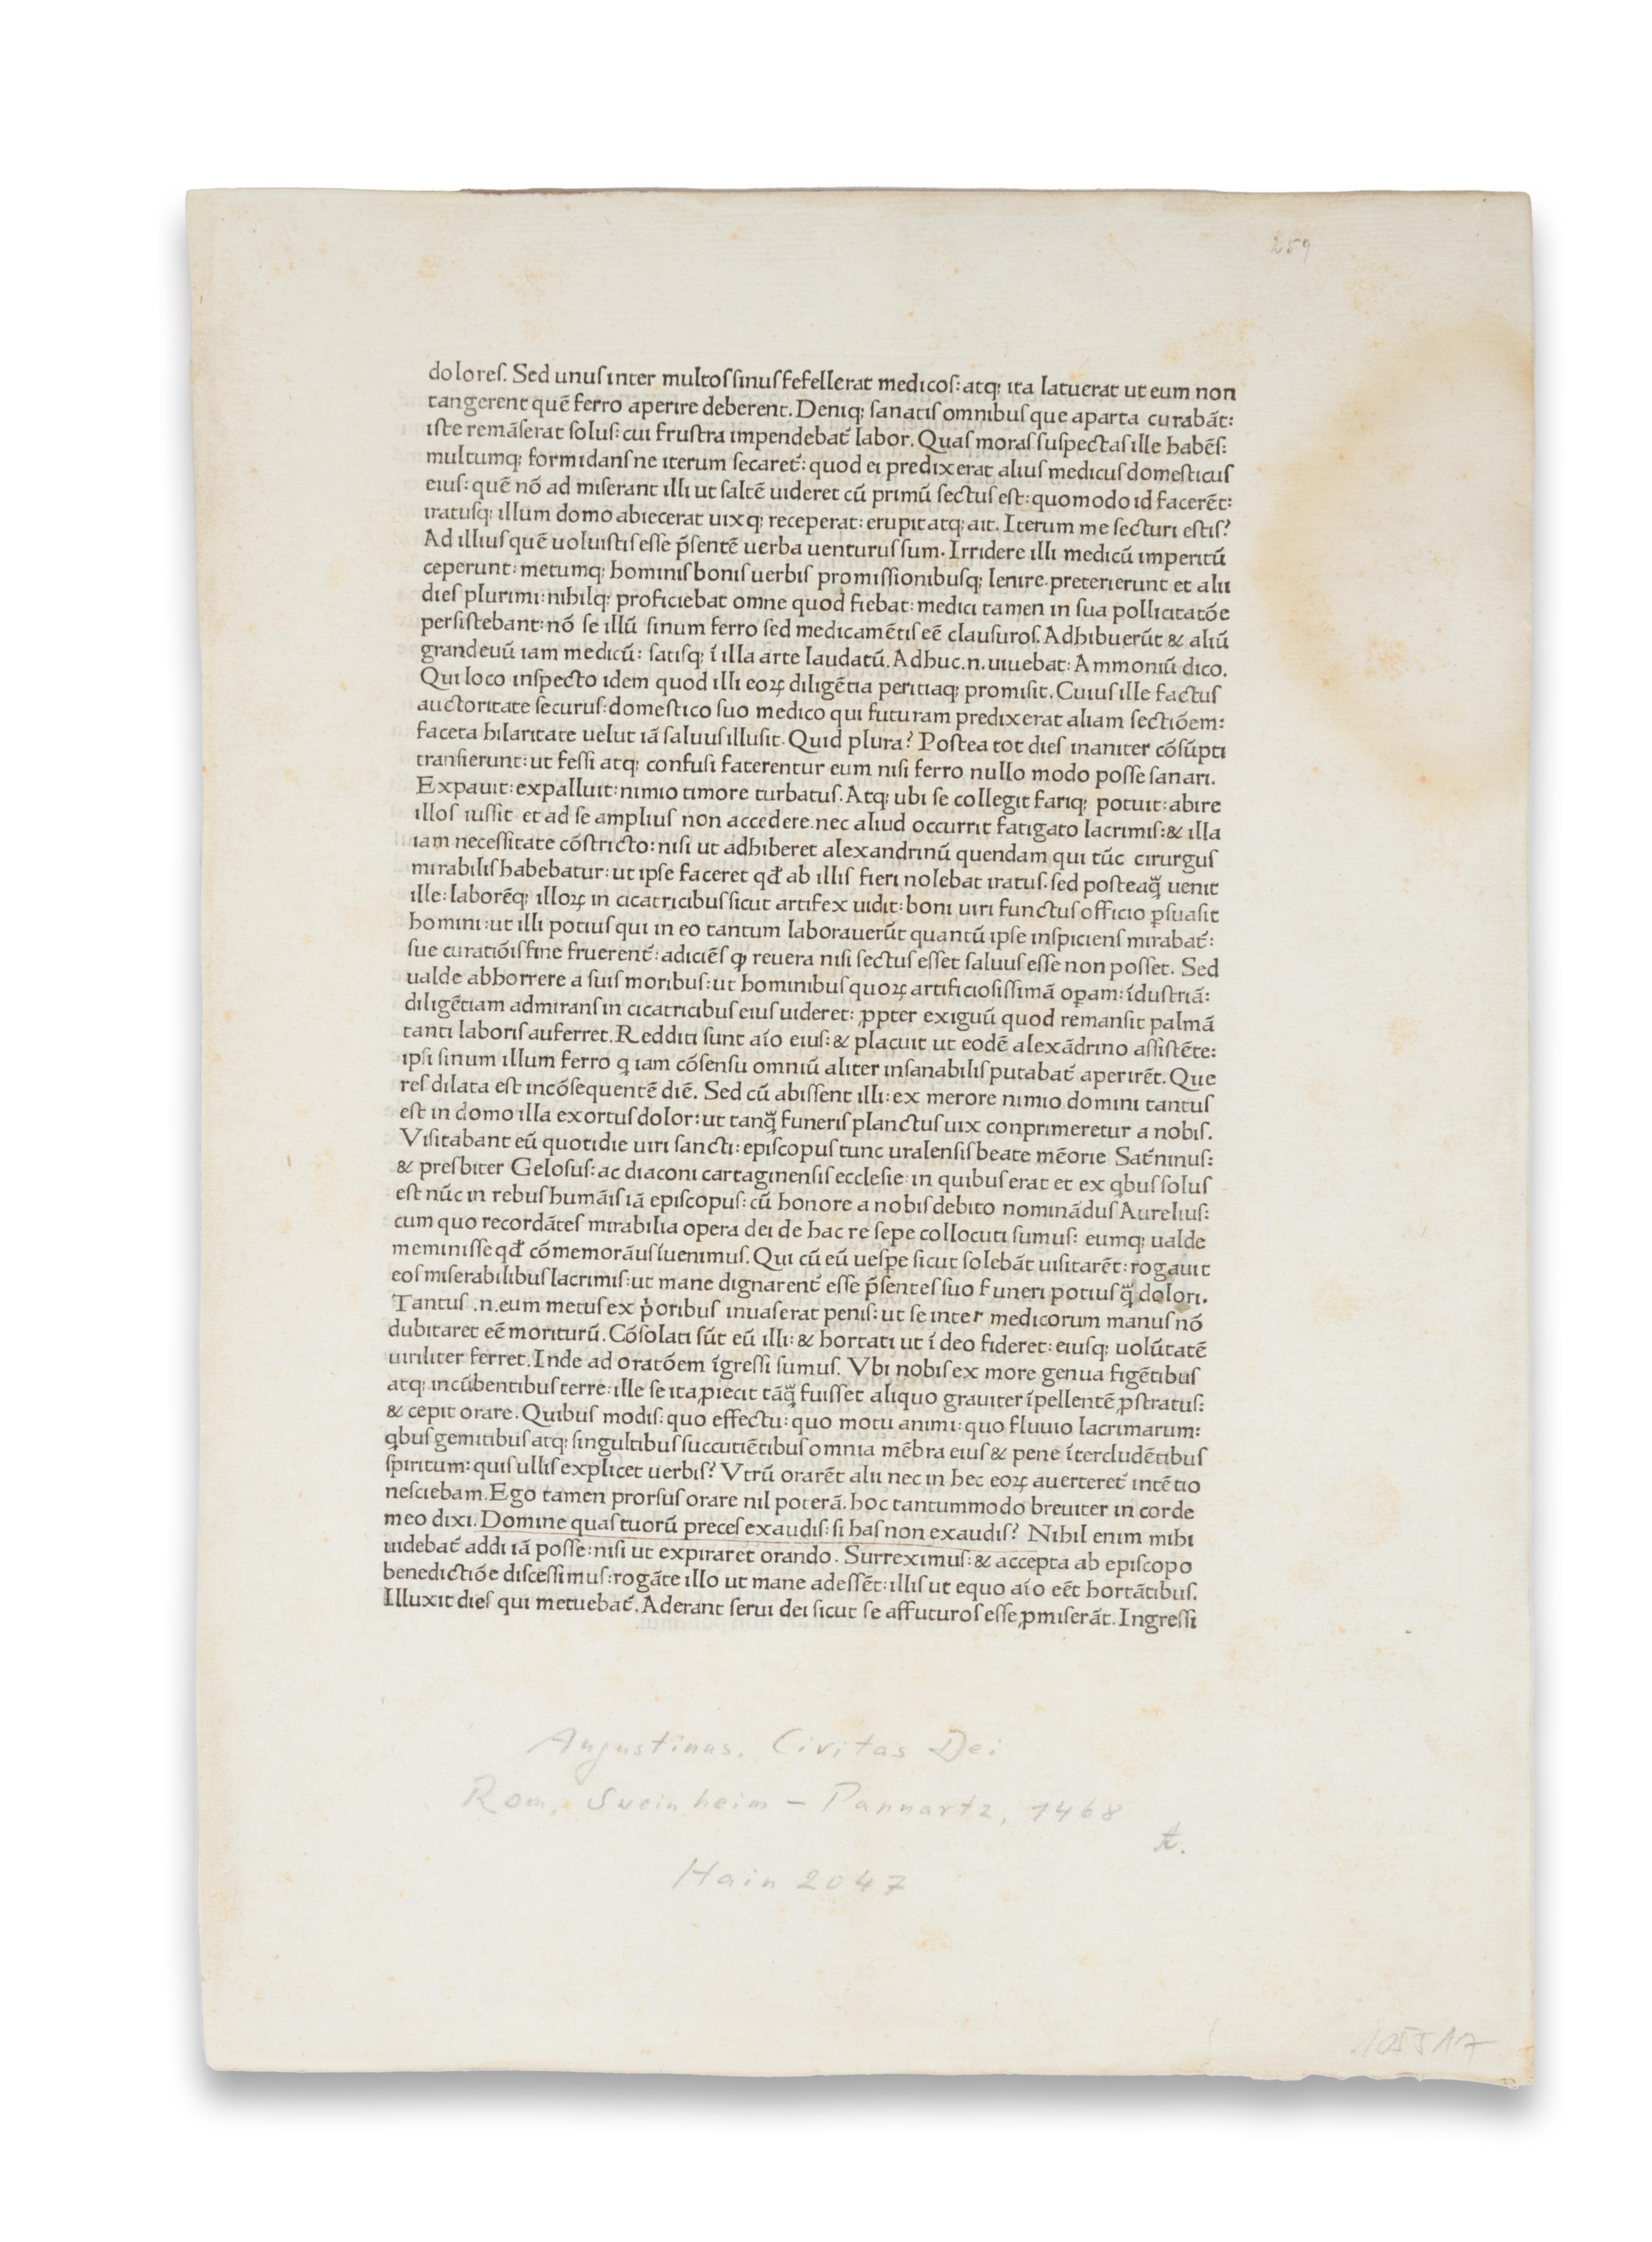 259
doloreſ. Sed unuſ inter multoſ ſinuſ fefellerat medicoſ: atq; ita latuerat ut eum non
tangerent quē ferro aperire deberent. Deniq; ſanatiſ omnibuſ que aparta curabāt:
iſte remāſerat ſoluſ: cui fruſtra impendebat̄ labor. Quaſ moraſ ſuſpectaſ ille habēſ:
multumq; formidanſ ne iterum ſecaret̄: quod ei predixerat aliuſ medicuſ domeſticuſ
eiuſ: quē nō ad miſerant illi ut ſaltē uideret cū primū ſectuſ eſt: quomodo id facerēt:
iratuſq; illum domo abiecerat uixq; receperat: erupit atq; ait. Iterum me ſecturi eſtiſ?
Ad illiuſ quē uoluiſtiſ eſſe p̄ſentē uerba uenturuſ ſum. Irridere illi medicū imperitū
ceperunt: metumq; hominiſ boniſ uerbiſ promiſſionibuſq; lenire. preterierunt et alii
dieſ plurimi: nihilq; proficiebat omne quod fiebat: medici tamen in ſua pollicitatōe
perſiſtebant: nō ſe illū ſinum ferro ſed medicamētiſ eē clauſuroſ. Adhibuerūt & aliū
grandeuū iam medicū: ſatiſq; ī illa arte laudatū. Adhuc .n. uiuebat: Ammoniū dico.
Qui loco inſpecto idem quod illi eoꝝ diligētia peritiaq; promiſit. Cuiuſ ille factuſ
auctoritate ſecuruſ: domeſtico ſuo medico qui futuram predixerat aliam ſectiōem:
faceta hilaritate uelut iā ſaluuſ illuſit. Quid plura? Poſtea tot dieſ inaniter cōſūpti
tranſierunt: ut feſſi atq; confuſi faterentur eum niſi ferro nullo modo poſſe ſanari.
Expauit: expalluit: nimio timore turbatuſ. Atq; ubi ſe collegit fariq; potuit: abire
illoſ iuſſit et ad ſe ampliuſ non accedere. nec aliud occurrit fatigato lacrimiſ: & illa
iam neceſſitate cōſtricto: niſi ut adhiberet alexandrinū quendam qui tūc cirurguſ
mirabiliſ habebatur: ut ipſe faceret qđ ab illiſ fieri nolebat iratuſ. ſed poſteaq̄ uenit
ille: laborēq; illoꝝ in cicatricibuſ ſicut artifex uidit: boni uiri functuſ officio ꝑſuaſit
homini: ut illi potiuſ qui in eo tantum laborauerūt quantū ipſe inſpicienſ mirabat̄:
ſue curatiōiſ fine fruerent̄: adiciēſ ꝙ reuera niſi ſectuſ eſſet ſaluuſ eſſe non poſſet. Sed
ualde abhorrere a ſuiſ moribuſ: ut hominibuſ quoꝝ artificioſiſſimā oꝑam: īduſtriā:
diligētiam admiranſ in cicatricibuſ eiuſ uideret: ꝓpter exiguū quod remanſit palmā
tanti laboriſ auferret. Redditi ſunt aīo eiuſ: & placuit ut eodē alexādrino aſſiſtēte:
ipſi ſinum illum ferro q iam cōſenſu omniū aliter inſanabiliſ putabat̄ aperirēt. Que
reſ dilata eſt incōſequentē diē. Sed cū abiſſent illi: ex merore nimio domini tantuſ
eſt in domo illa exortuſ dolor: ut tanq̄ funeriſ planctuſ uix conprimeretur a nobiſ.
Viſitabant eū quotidie uiri ſancti: epiſcopuſ tunc uralenſiſ beate mēorie Sat̄ninuſ:
& preſbiter Geloſuſ: ac diaconi cartaginenſiſ eccleſie: in quibuſ erat et ex qbuſ ſoluſ
eſt nūc in rebuſ humāiſ iā epiſcopuſ: cū honore a nobiſ debito nomināduſ Aureliuſ:
cum quo recordāteſ mirabilia opera dei de hac re ſepe collocuti ſumuſ: eumq; ualde
meminiſſe qđ cōmemorāuſ īuenimuſ. Qui cū eū ueſꝑe ſicut ſolebāt uiſitarēt: rogauit
eoſ miſerabilibuſ lacrimiſ: ut mane dignarent̄ eſſe p̄ſenteſ ſuo funeri potiuſq̄ dolori.
Tantuſ .n. eum metuſ ex p̄oribuſ inuaſerat peniſ: ut ſe inter medicorum manuſ nō
dubitaret eē moriturū. Cōſolati ſūt eū illi: & hortati ut ī deo fideret: eiuſq; uolūtatē
uiriliter ferret. Inde ad oratōem īgreſſi ſumuſ. Vbi nobiſ ex more genua figētibuſ
atq; incūbentibuſ terre: ille ſe ita ꝓiecit tāq̄ fuiſſet aliquo grauiter īpellentē ꝓſtratuſ:
& cepit orare. Quibuſ modiſ: quo effectu: quo motu animi: quo fluuio lacrimarum:
qbuſ gemitibuſ atq; ſingultibuſ ſuccutiētibuſ omnia mēbra eiuſ & pene ītercludētibuſ
ſpiritum: quiſ ulliſ explicet uerbiſ? Vtrū orarēt alii nec in hec eoꝝ auerteret̄ intētio
neſciebam. Ego tamen prorſuſ orare nil poterā. hoc tantummodo breuiter in corde
meo dixi. Domine quaſ tuorū preceſ exaudiſ: ſi haſ non exaudiſ? Nihil enim mihi
uidebat̄ addi iā poſſe: niſi ut expiraret orando. Surreximuſ: & accepta ab epiſcopo
benedictiōe diſceſſimuſ: rogāte illo ut mane adeſſēt: illiſ ut equo aīo eēt hortātibuſ.
Illuxit dieſ qui metuebat̄. Aderant ſerui dei ſicut ſe affuturoſ eſſe ꝓmiſerāt. Ingreſſi
Augustinus, Civitas Dei
Rom, Sweinheim – Pannartz, 1468
Hain 2047
105517